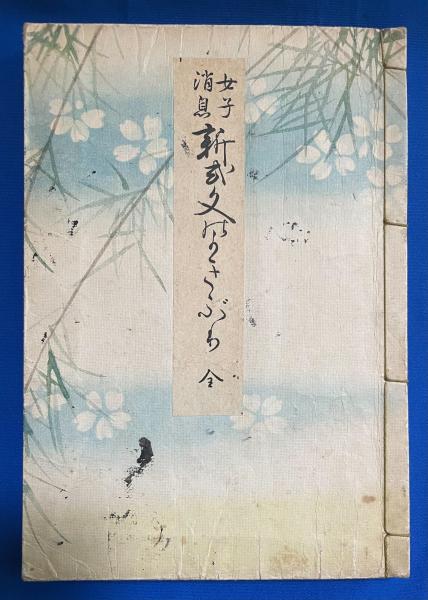 女子
消息
新式文のかきぶり 全